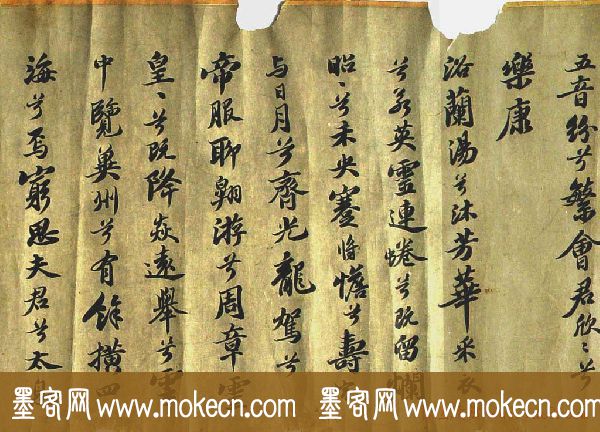 五音纷兮繁會君欣〻兮
樂康
浴蘭湯兮沐芳華采衣
兮若英靈連蜷兮既留爛
昭〻兮未央蹇將憺兮壽
与日月兮齊光龍駕兮
帝服聊翱游兮周章靈
皇〻兮既降猋遠舉兮雲
中覽冀州兮有餘横四
海兮焉窮思夫君兮太
墨客网 www.mokecn.com 墨客网 www.mokecn.com